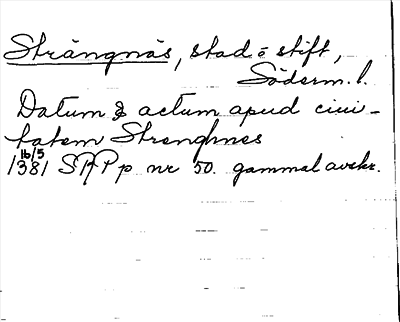 Strängnäs, stad o stift,
Söderm. l.
Datum & actum apud civi-
tatem Strenghnes
16/5
1381 SRPp nr 50. gammal avskr.